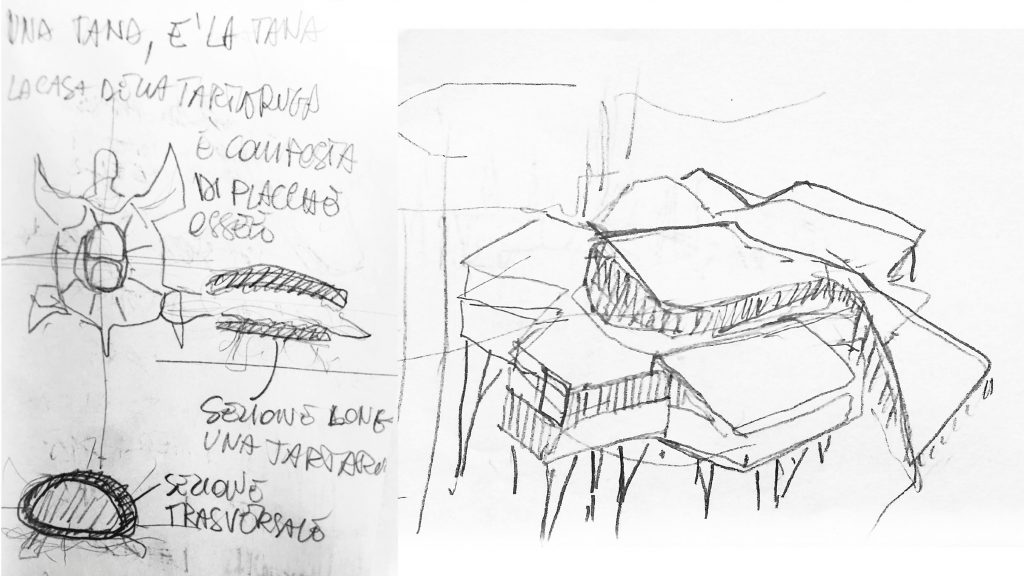 UNA TANA, E' LA TANA
LA CASA DELLA TARTARUGA
È COMPOSTA
DI PLACCHE
OSSEE
SEZIONE LONG
UNA TARTARU
SEZIONE
TRASVERSALE